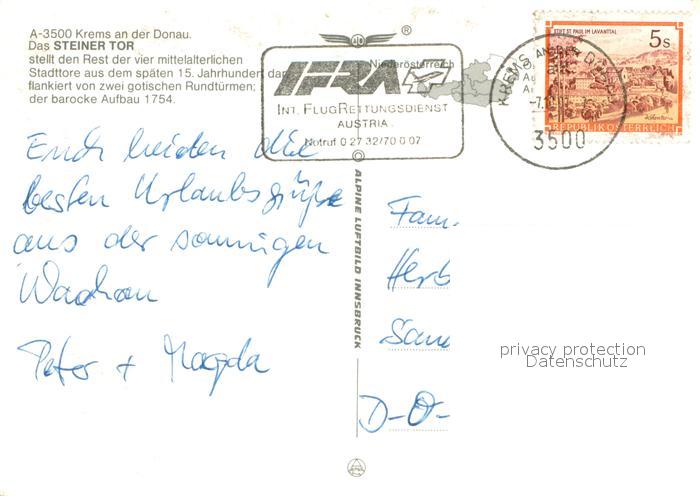 A-3500 Krems an der Donau.
Das STEINER TOR
stellt den Rest der vier mittelalterlichen
Stadttore aus dem späten 15. Jahrhundert dar
flankiert von zwei gotischen Rundtürmen;
der barocke Aufbau 1754.
®
Niederösterreich
IFRA
INT. FLUGRETTUNGSDIENST
AUSTRIA
Notruf 0 27 32/70 0 07
KREMS AN DER DONAU
-7.
3500
STIFT ST. PAUL IM LAVANTTAL
5 S
REPUBLIK ÖSTERREICH
Euch beiden die
besten Urlaubsgrüße
aus der sonnigen
Wachau
Peter + Magda
ALPINE LUFTBILD INNSBRUCK
Fam.
Herb
D-O-
privacy protection
Datenschutz